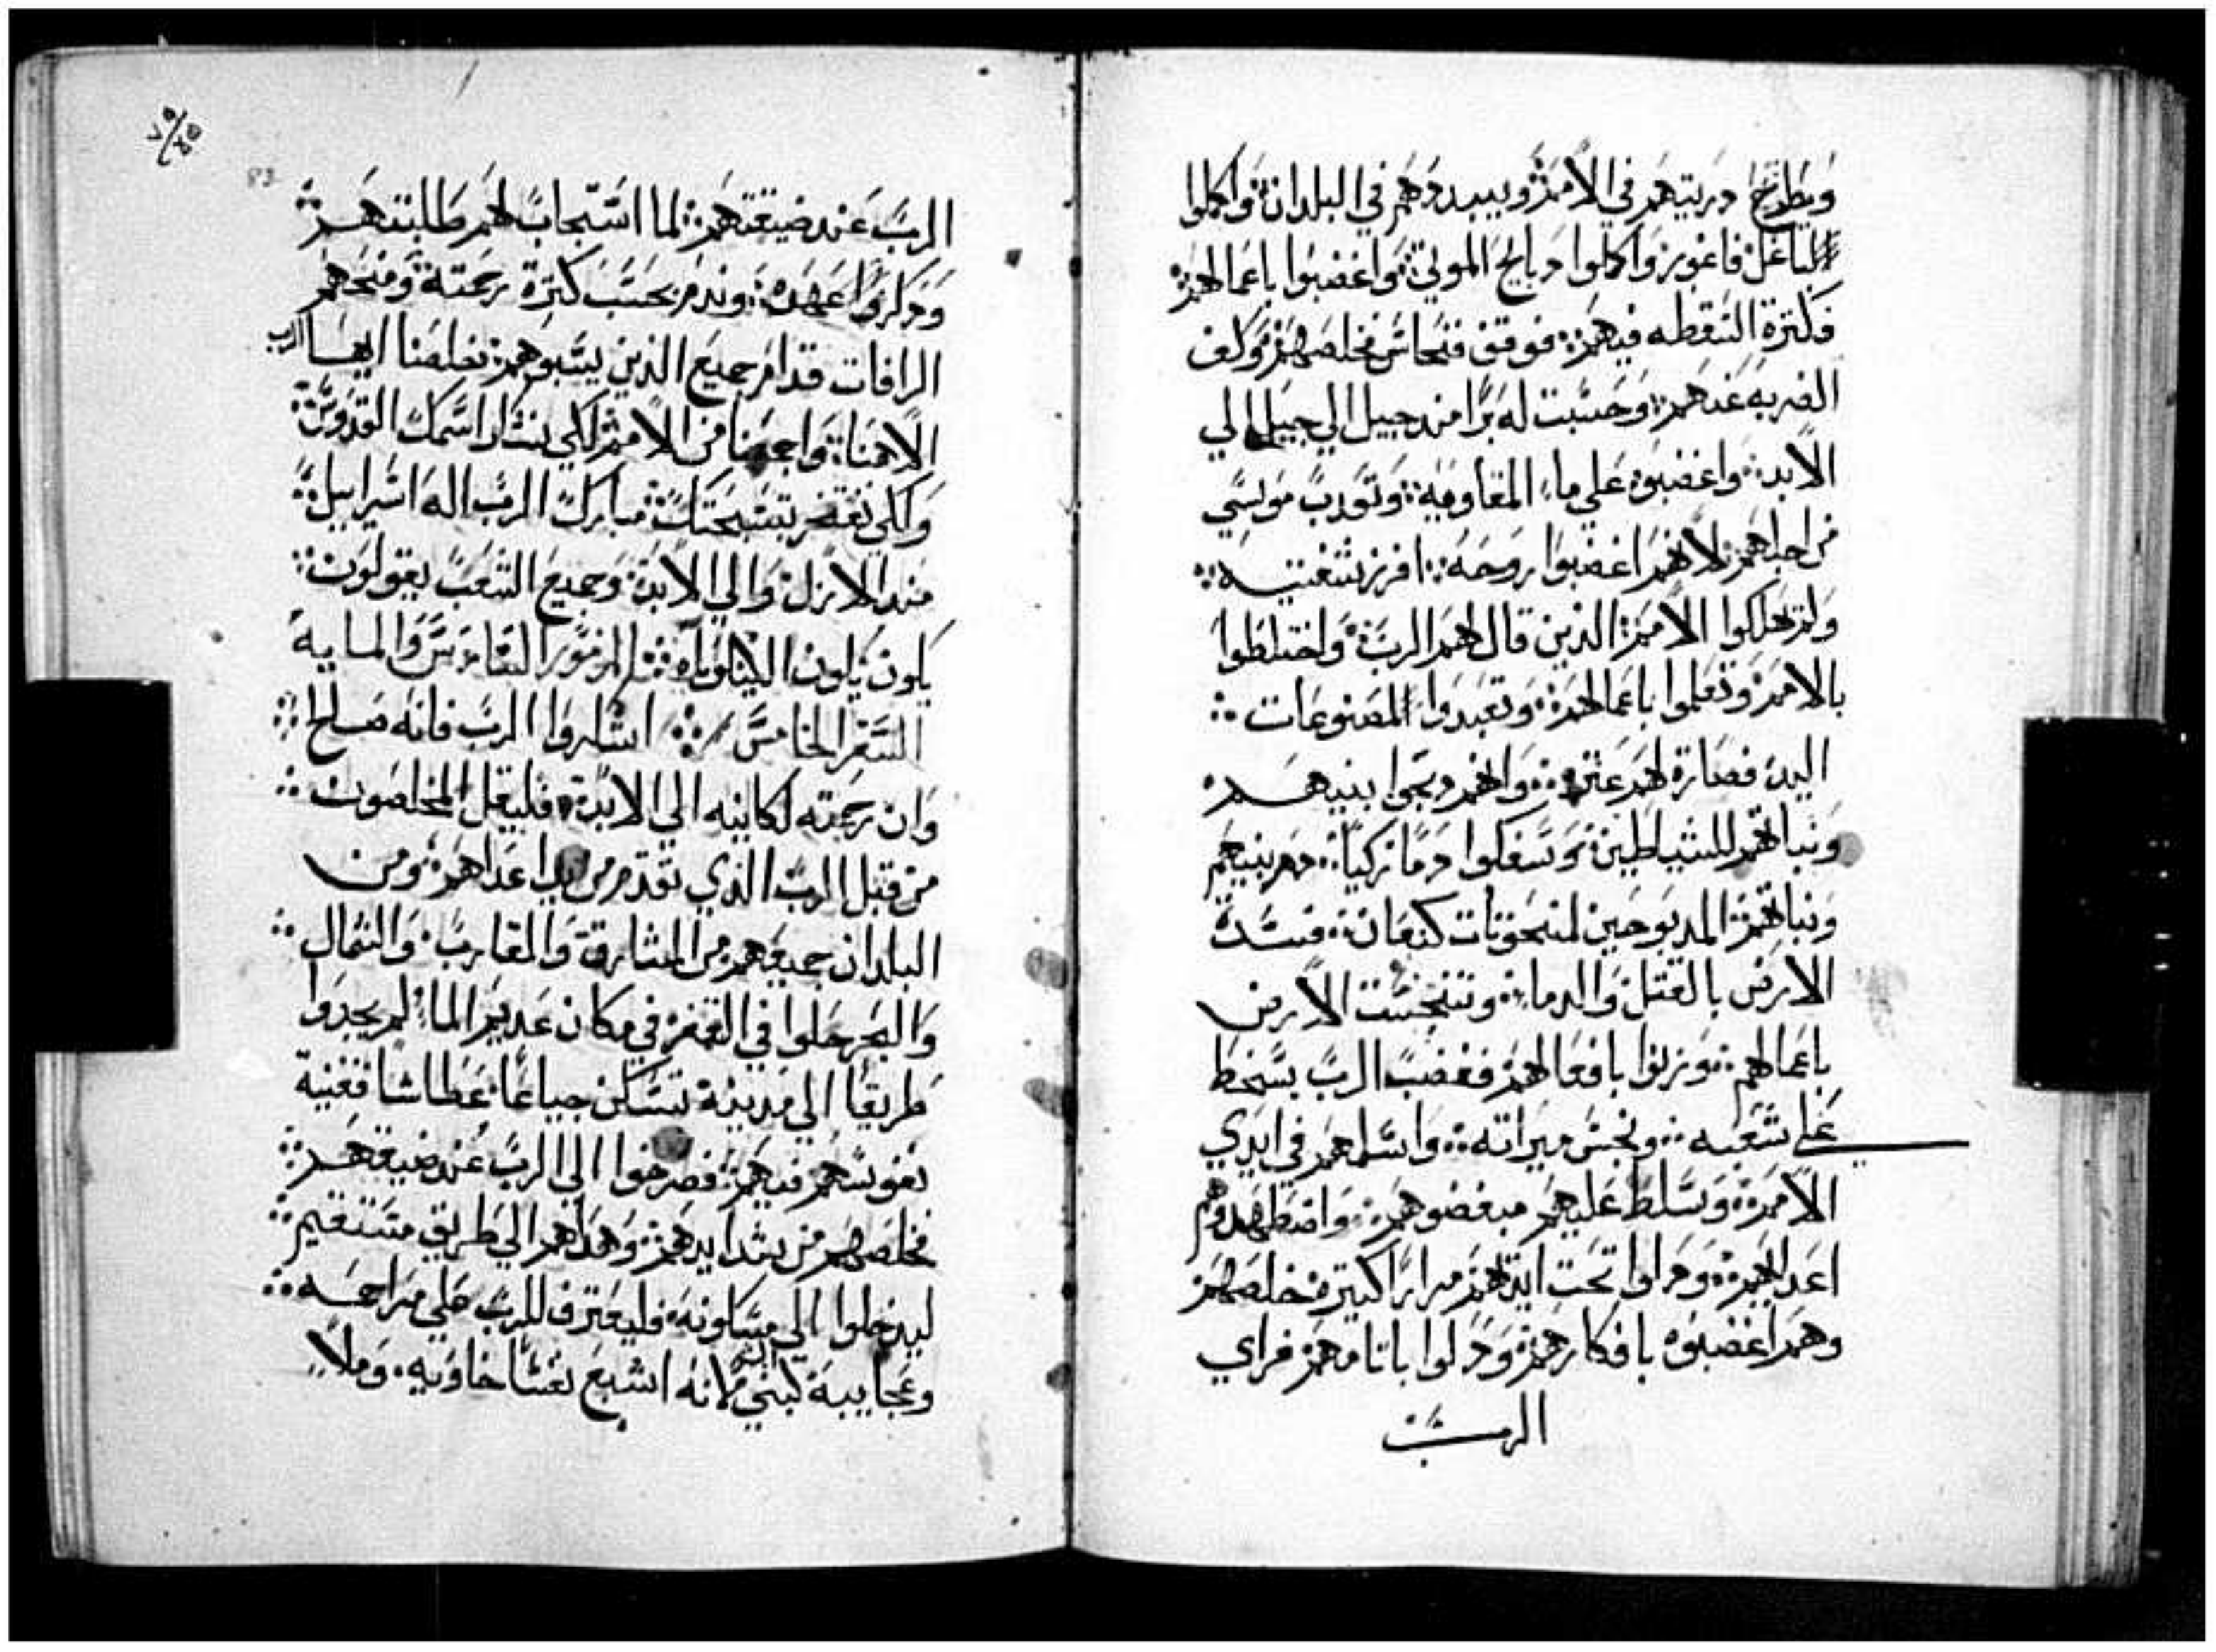 ويطرح دريتهم في الامم ويبددهم في البلدان واكملوا
لباعل فاغور واكلوا دبايح الموتي واغضبوا باعمالهم
فكترة السقطه فيهم فوقف فنحاس فخلصهم وكف
الضربه عنهم وحسبت له برا مند جيل الي جيل الي
الابد واغضبوه علي ماء المقاومه وتودب موسي
من اجلهم لانهم اغضبوا روحه افرز شفتيه
ولم يهلكوا الامم الذين قال لهم الرب واختلطوا
بالامم وتعلموا باعمالهم وتعبدوا المصنوعات
اليد فصارة لهم عترة وانهم دبحوا بنيهم
وبناتهم للشياطين وسفكوا دما زكيا دم بنيهم
وبناتهم المدبوحين لمنحوتات كنعان فسدة
الارض بالقتل والدما وتنجست الارض
باعمالهم وزنوا بافعالهم فغضب الرب بسخط
علي شعبه ونجس ميراته واسلمهم في ايدي
الامم وتسلط عليهم مبغضوهم واضطهدوهم
اعداهم وداوا تحت ايديهم مرارا كتيره خلصهم
وهم اغضبوه بافكارهم ودلوا باتامهم فراي
الرب
الرب عند ضيقتهم لما استجاب لهم طلبتهم
ودكروا عهده وندم بحسب كترة رحمته ومنحهم
الرافات قدام جميع الذين يسبوهم خلصنا ايها الرب
الاهنا واجمعنا من الامم لكي نشكر اسمك القدوس
ولكي نفتخر بتسبحتك مبارك الرب اله اسراييل
مند الازل والي الابد وجميع الشعب يقولون
يكون يكون الليلوياه المزمور السادس والمايه
السفر الخامس اشكروا الرب فانه صالح
وان رحمته لكاينه الي الابد فليقل المخلصون
من قبل الرب الذي تقدم من يد اعداهم ومن
البلدان جمعهم من المشارق والمغارب والشمال
والبحر ضلوا في القفر في مكان عديم الما لم يجدوا
طريقا الي مدينة تسكن جياعا عطاشا ففنية
نفوسهم فيهم فصرخوا الي الرب عند ضيقتهم
فخلصهم من شدايدهم وهداهم الي طريق مستقيم
ليدخلوا الي مسكونة فليعترف للرب علي مراحمه
وعجايبه لبني البشر لانه اشبع نفسا خاويه وملا
٧٥
83